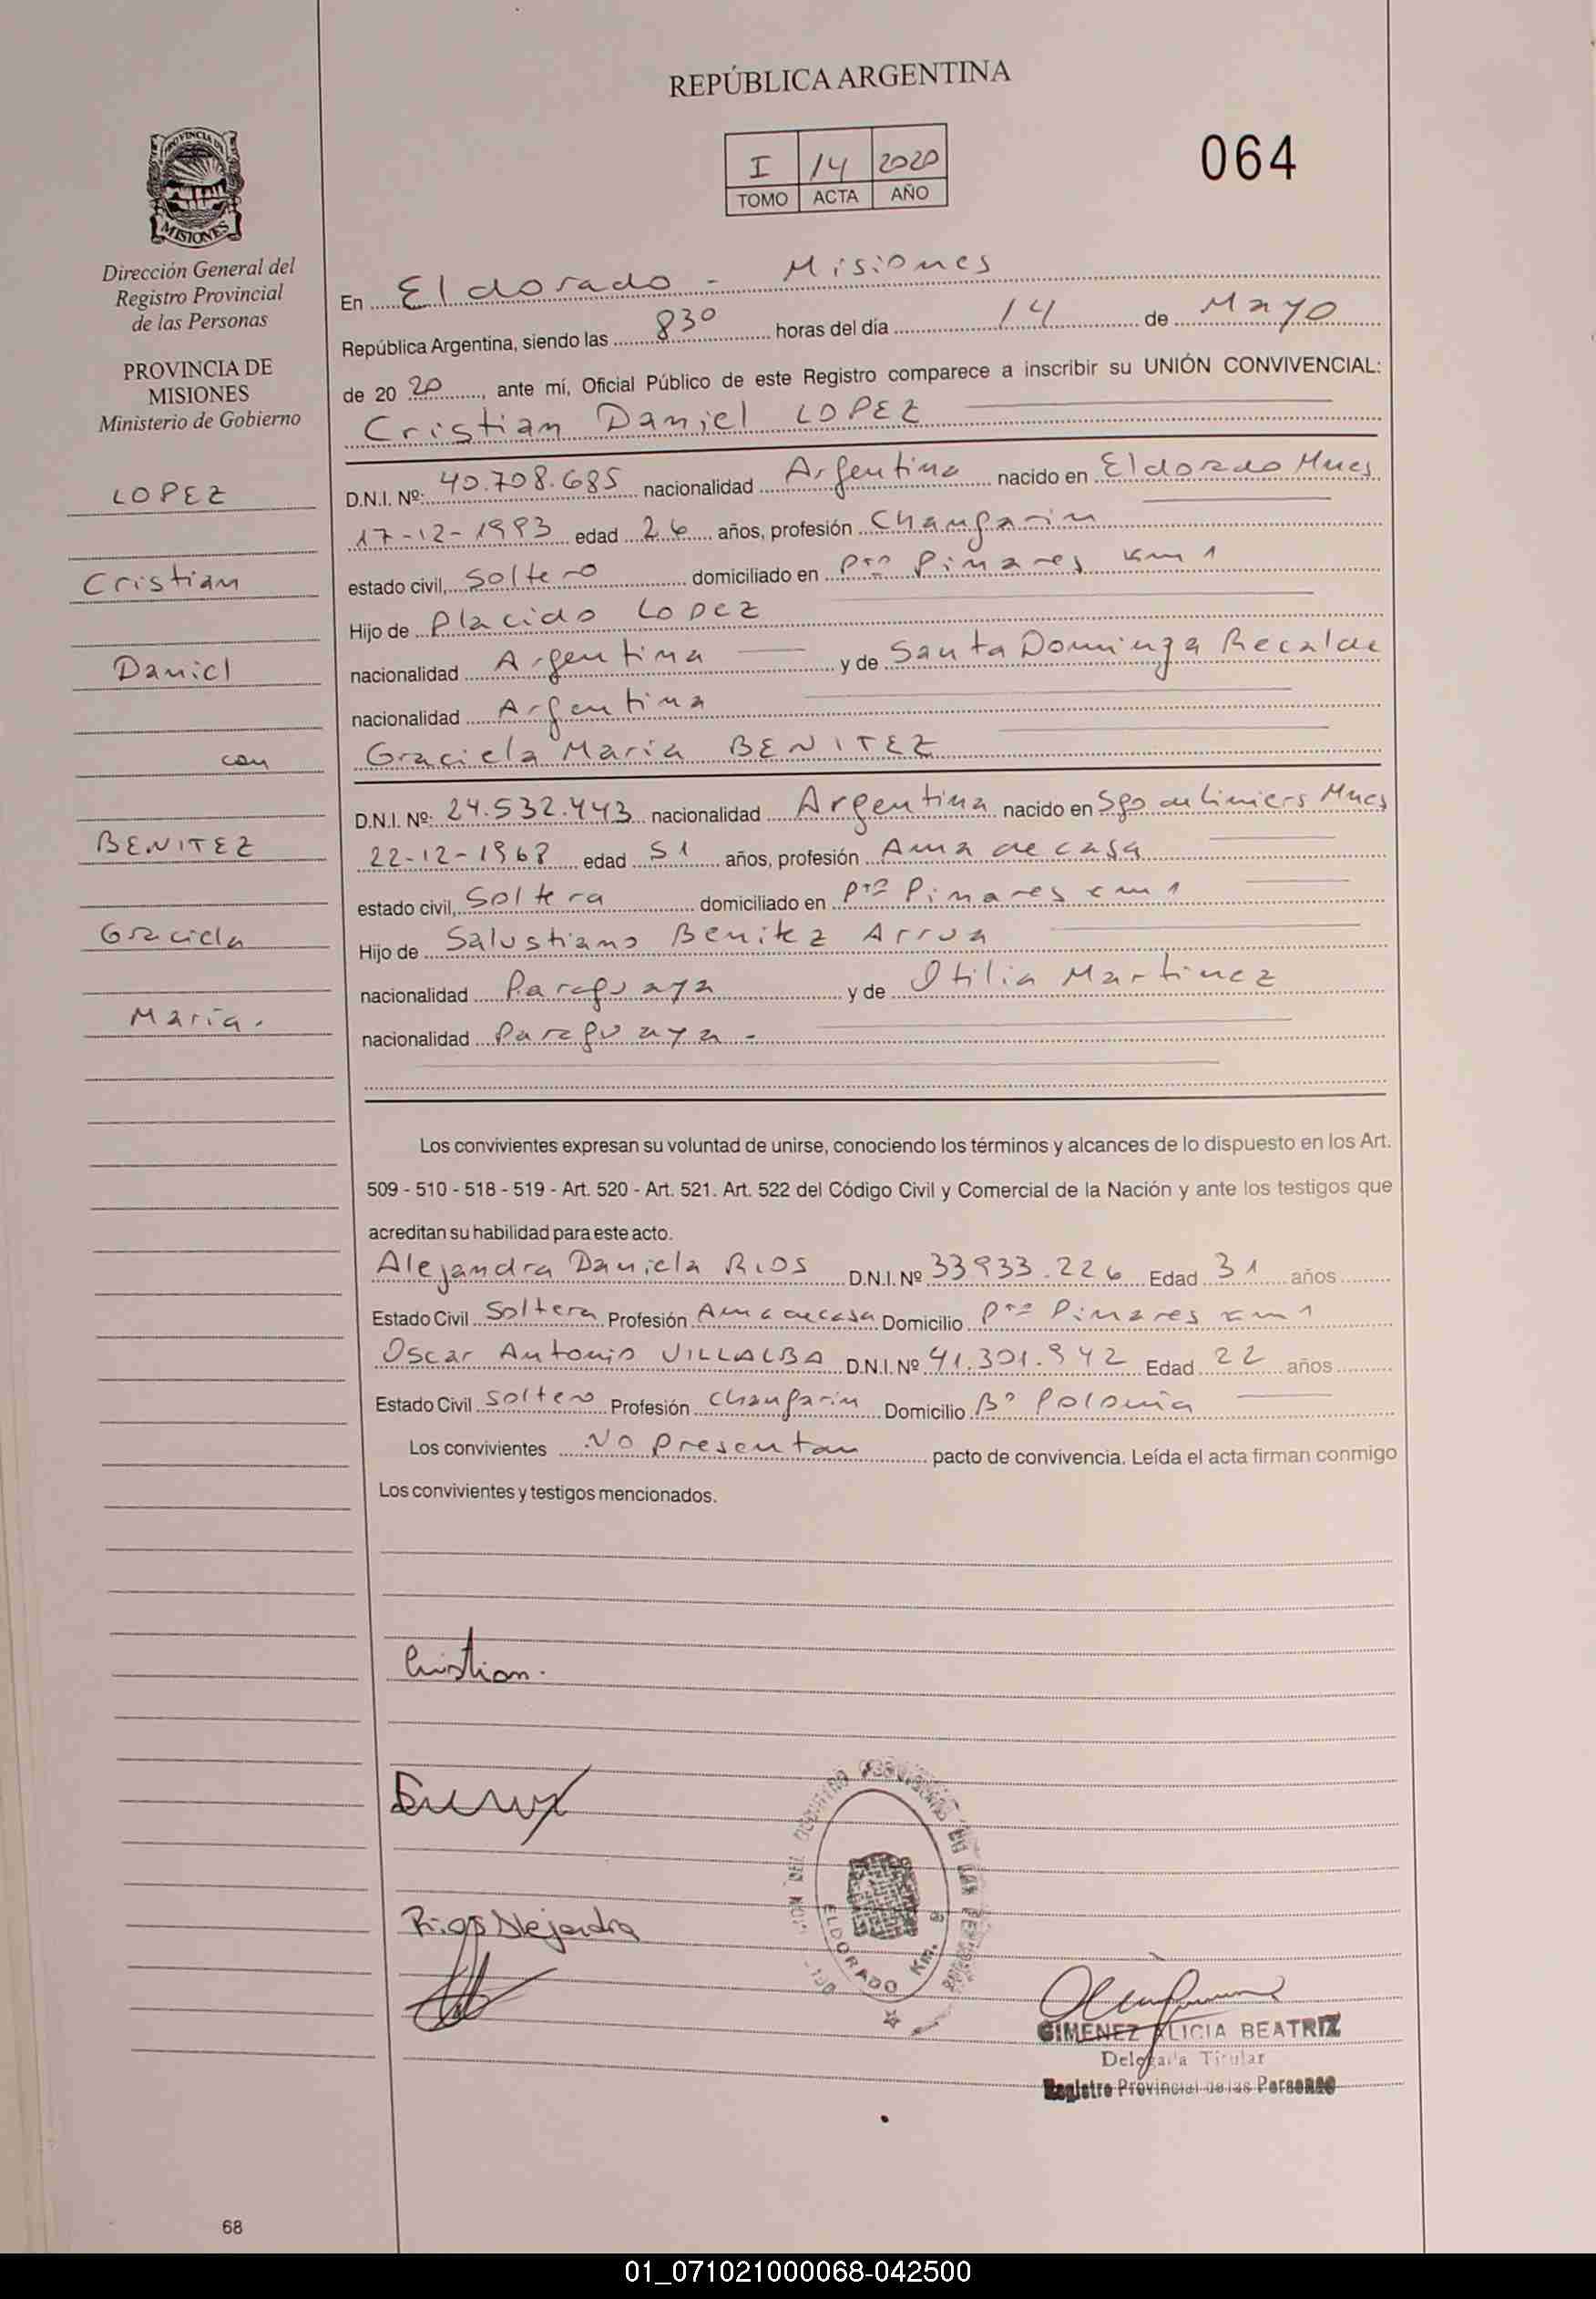 REPÚBLICA ARGENTINA
I 14 2020
TOMO ACTA AÑO
064
PROVINCIA DE
MISIONES
Dirección General del
Registro Provincial
de las Personas
PROVINCIA DE
MISIONES
Ministerio de Gobierno
LOPEZ
Cristian
Daniel
con
BENITEZ
Graciela
María.
En Eldorado - Misiones
República Argentina, siendo las 830 horas del día 14 de Mayo
de 20 20, ante mí, Oficial Público de este Registro comparece a inscribir su UNIÓN CONVIVENCIAL:
Cristian Daniel LOPEZ
D.N.I. Nº: 40.708.685 nacionalidad Argentina nacido en Eldorado Mnes
17-12-1993 edad 26 años, profesión Changarin
estado civil, Soltero domiciliado en Pto Pinares Km 1
Hijo de Placido Lopez
nacionalidad Argentina y de Santa Dominga Recalde
nacionalidad Argentina
Graciela María BENITEZ
D.N.I. Nº: 24.532.443 nacionalidad Argentina nacido en Sgo de Liniers Mnes
22-12-1968 edad 51 años, profesión Ama de casa
estado civil, Soltera domiciliado en Pto Pinares Km 1
Hijo de Salustiano Benitez Arrua
nacionalidad Paraguaya y de Otilia Martinez
nacionalidad Paraguaya -
Los convivientes expresan su voluntad de unirse, conociendo los términos y alcances de lo dispuesto en los Art.
509 - 510 - 518 - 519 - Art. 520 - Art. 521. Art. 522 del Código Civil y Comercial de la Nación y ante los testigos que
acreditan su habilidad para este acto.
Alejandra Daniela RIOS D.N.I. Nº 33933.226 Edad 31 años
Estado Civil Soltera Profesión Ama de casa Domicilio Pto Pinares Km 1
Oscar Antonio VILLALBA D.N.I. Nº 41.301.942 Edad 22 años
Estado Civil Soltero Profesión Changarin Domicilio Bº Polonia
Los convivientes No presentan pacto de convivencia. Leída el acta firman conmigo
Los convivientes y testigos mencionados.
Cristian.
Rios Alejandra
ELDORADO Km. 8
GIMENEZ ALICIA BEATRIZ
Delegada Titular
Registro Provincial de las Personas
68
01_071021000068-042500